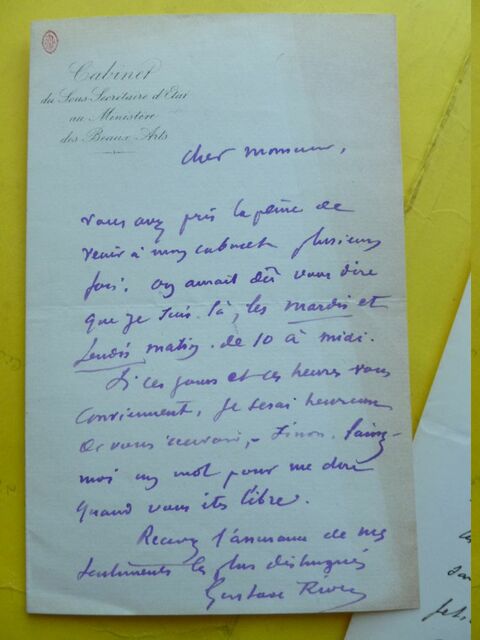 Cabinet
du Sous-Secrétaire d'Etat
au Ministère
des Beaux Arts
Cher monsieur,
vous avez pris la peine de
venir à mon cabinet plusieurs
fois. On aurait dû vous dire
que je suis là, les mardis et
Jeudis matin. de 10 à midi.
Si ces jours et ces heures vous
conviennent, je serai heureux
de vous recevoir, - Sinon,
moi un mot pour me dire
quand vous êtes libre.
Recevez l'assurance de mes
sentiments les plus distingués
Gustave